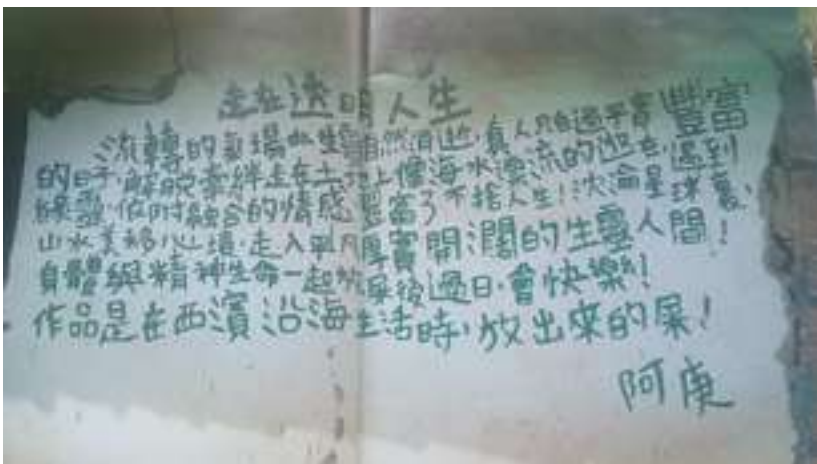 走在透明人生
流轉的氣場此生自然消逝,真人只自過平實豐富
的日子,解脫牽絆走在土地上像海水漂流的逝去,遇到
依附融合的情感豐富了不捨人生!沈淪星球裏,
山水美移心境,走入平凡厚實開濶的生靈人間!
身體與精神生命一起放屎後過日,會快樂!
作品是在西濱沿海生活時,放出來的屎!
阿庚